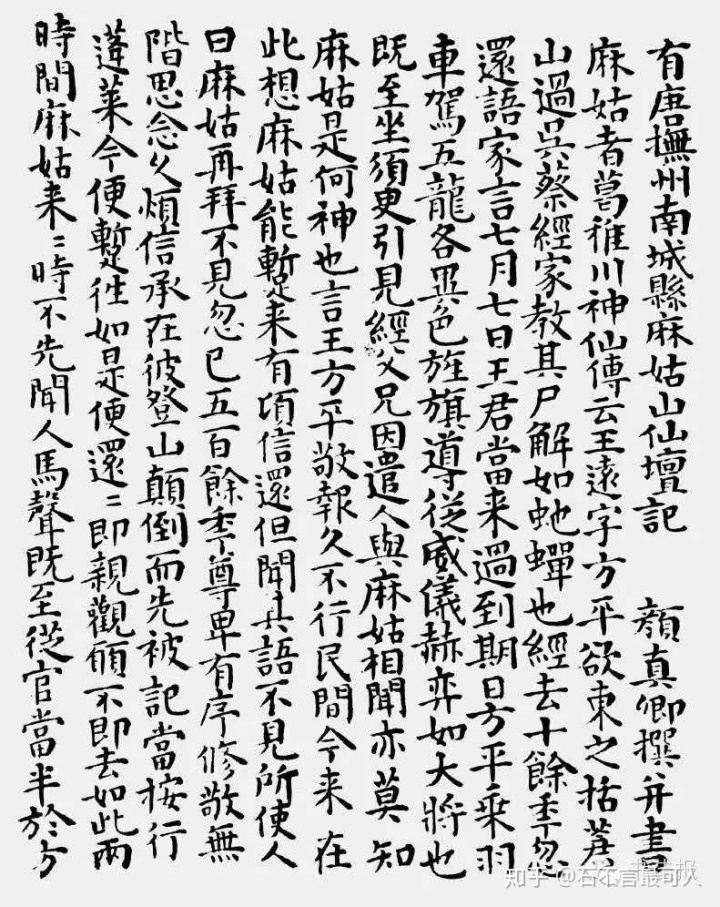 有唐撫州南城縣麻姑山仙壇記 顏真卿撰并書
麻姑者葛稚川神仙傳云王遠字方平欲東之括蒼
山過吳蔡經家教其尸解如虵蟬也經去十餘年忽
還語家言七月七日王君當来過到期日方平乗羽
車駕五龍各異色旌旗導從威儀赫弈如大將也
既至坐須臾引見經父兄因遣人與麻姑相聞亦莫知
麻姑是何神也言王方平敬報久不行民間今来在
此想麻姑能暫来有頃信還但聞其語不見所使人
曰麻姑再拜不見忽已五百餘年尊卑有序修敬無
階思念久煩信承在彼登山顛倒而先被記當按行
蓬萊今便暫往如是便還〻即親觀願不即去如此兩
時間麻姑来〻時不先聞人馬聲既至從官當半於方
知乎 @石不言最可人